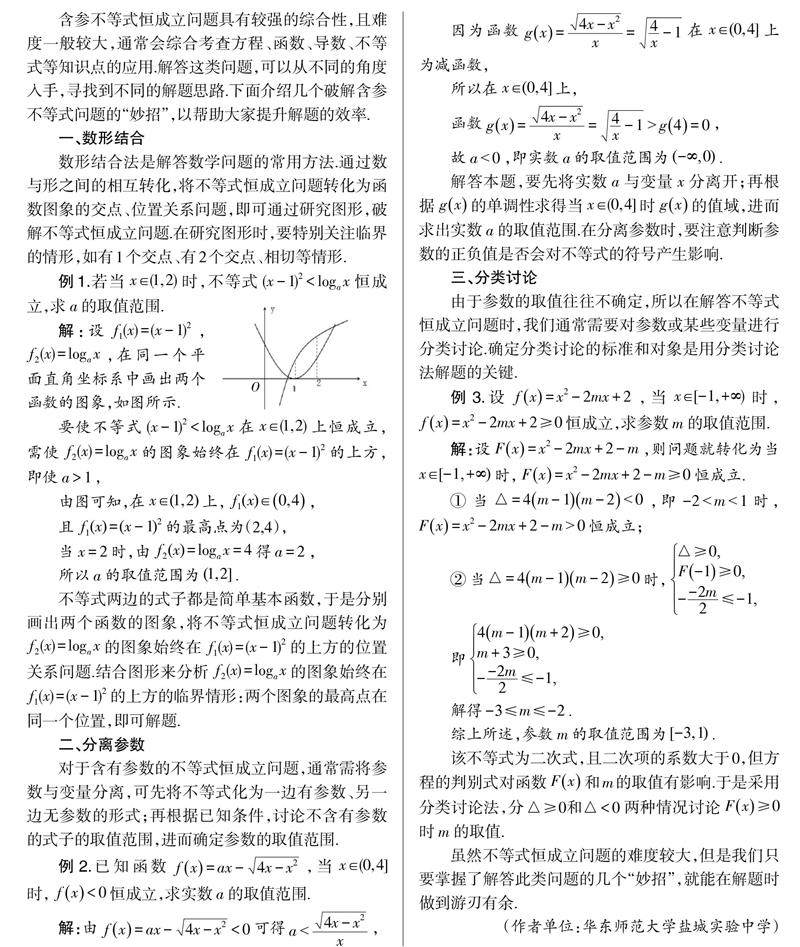 含参不等式恒成立问题具有较强的综合性,且难
度一般较大,通常会综合考查方程、函数、导数、不等
式等知识点的应用.解答这类问题,可以从不同的角度
入手,寻找到不同的解题思路.下面介绍几个破解含参
不等式问题的“妙招”,以帮助大家提升解题的效率.
一、数形结合
数形结合法是解答数学问题的常用方法.通过数
与形之间的相互转化,将不等式恒成立问题转化为函
数图象的交点、位置关系问题,即可通过研究图形,破
解不等式恒成立问题.在研究图形时,要特别关注临界
的情形,如有1个交点、有2个交点、相切等情形.
例1.若当 x∈(1,2) 时,不等式 (x−1)²<logₐx 恒成
立,求 a 的取值范围.
解:设 f₁(x)=(x−1)² ,
f₂(x)=logₐx ,在同一个平
面直角坐标系中画出两个
函数的图象,如图所示.
y
O
1
2
x
要使不等式 (x−1)²<logₐx 在 x∈(1,2) 上恒成立,
需使 f₂(x)=logₐx 的图象始终在 f₁(x)=(x−1)² 的上方,
即使 a>1 ,
由图可知,在 x∈(1,2) 上, f₁(x)∈(0,4) ,
且 f₁(x)=(x−1)² 的最高点为(2,4),
当 x=2 时,由 f₂(x)=logₐx=4 得 a=2 ,
所以 a 的取值范围为 (1,2] .
不等式两边的式子都是简单基本函数,于是分别
画出两个函数的图象,将不等式恒成立问题转化为
f₂(x)=logₐx 的图象始终在 f₁(x)=(x−1)² 的上方的位置
关系问题.结合图形来分析 f₂(x)=logₐx 的图象始终在
f₁(x)=(x−1)² 的上方的临界情形:两个图象的最高点在
同一个位置,即可解题.
二、分离参数
对于含有参数的不等式恒成立问题,通常需将参
数与变量分离,可先将不等式化为一边有参数、另一
边无参数的形式;再根据已知条件,讨论不含有参数
的式子的取值范围,进而确定参数的取值范围.
例2.已知函数 f(x)=ax−√(4x−x²) ,当 x∈(0,4]
时, f(x)<0 恒成立,求实数 a 的取值范围.
解:由 f(x)=ax−√(4x−x²)<0 可得 a<√(4x−x²)/x ,
因为函数 g(x)=√(4x−x²)/x=√(4/x−1) 在 x∈(0,4] 上
为减函数,
所以在 x∈(0,4] 上,
函数 g(x)=√(4x−x²)/x=√(4/x−1)>g(4)=0 ,
故 a<0 ,即实数 a 的取值范围为 (−∞,0) .
解答本题,要先将实数 a 与变量 x 分离开;再根
据 g(x) 的单调性求得当 x∈(0,4] 时 g(x) 的值域,进而
求出实数 a 的取值范围.在分离参数时,要注意判断参
数的正负值是否会对不等式的符号产生影响.
三、分类讨论
由于参数的取值往往不确定,所以在解答不等式
恒成立问题时,我们通常需要对参数或某些变量进行
分类讨论.确定分类讨论的标准和对象是用分类讨论
法解题的关键.
例 3.设 f(x)=x²−2mx+2 ,当 x∈[−1,+∞) 时,
f(x)=x²−2mx+2≥0 恒成立,求参数 m 的取值范围.
解:设 F(x)=x²−2mx+2−m ,则问题就转化为当
x∈[−1,+∞) 时, F(x)=x²−2mx+2−m≥0 恒成立.
① 当 △=4(m−1)(m−2)<0 ,即 −2<m<1 时,
F(x)=x²−2mx+2−m>0 恒成立;
② 当 △=4(m−1)(m−2)≥0 时, {△≥0,
F(−1)≥0,
−(−2m)/2≤−1,
即 {4(m−1)(m+2)≥0,
m+3≥0,
−(−2m)/2≤−1,
解得 −3≤m≤−2 .
综上所述,参数 m 的取值范围为 [−3,1) .
该不等式为二次式,且二次项的系数大于0,但方
程的判别式对函数 F(x) 和m的取值有影响.于是采用
分类讨论法,分△≥0和△<0 两种情况讨论 F(x)≥0
时 m 的取值.
虽然不等式恒成立问题的难度较大,但是我们只
要掌握了解答此类问题的几个“妙招”,就能在解题时
做到游刃有余.
(作者单位:华东师范大学盐城实验中学)